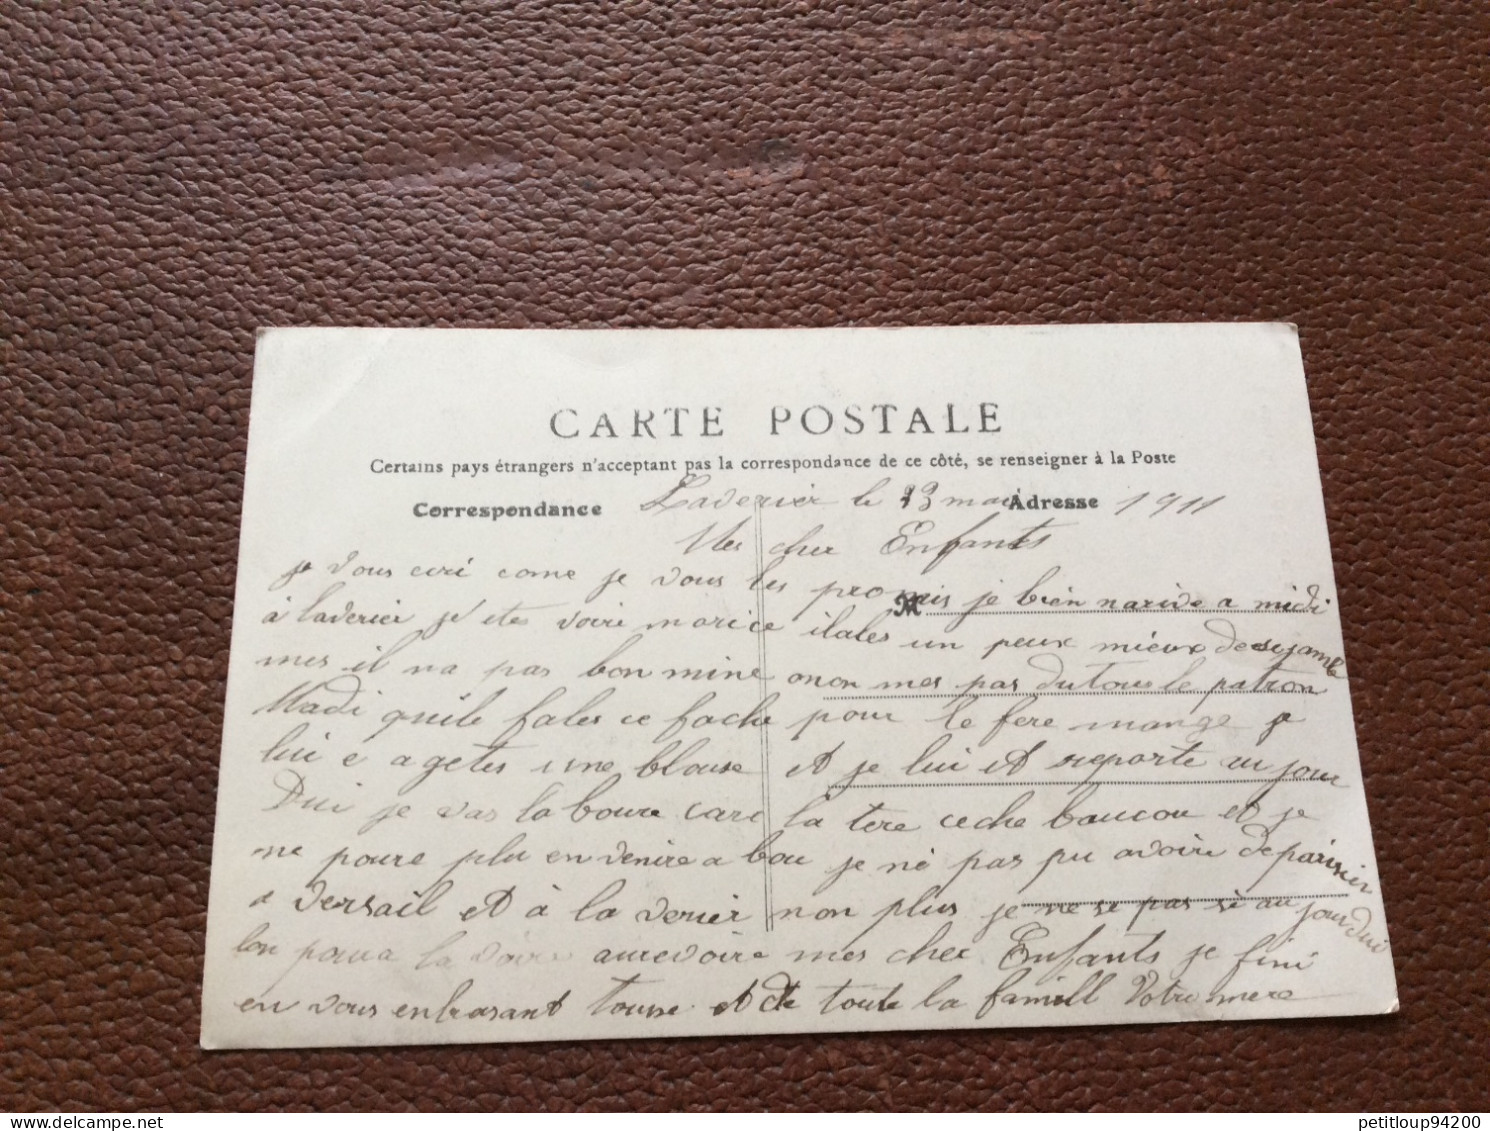 CARTE POSTALE
Certains pays étrangers n'acceptant pas la correspondance de ce côté, se renseigner à la Poste
Correspondance Laverier le 13 mai Adresse 1911
Mes cher Enfants
je vous ecri come je vous les promis je bien narive a midi
à laverier j'etes voire morice ilales un peux mieux de sa jambe
mes il na pas bon mine non mes pas du tous le patron
Madi quile fales ce fache pour le fere mange je
lui e agetes une blouse et je lui et reporte au jour
Dui je vas la boure care la tere ceche baucou et je
ne poure plu en venire a bou je né pas pu avoire de parisier
a Versail et à la verier non plus je ne se pas si au jourdui
lon poura la voire aurevoire mes cher Enfants je fini
en vous enbrasant tousse et de toute la famill Votre mere
petitloup94200